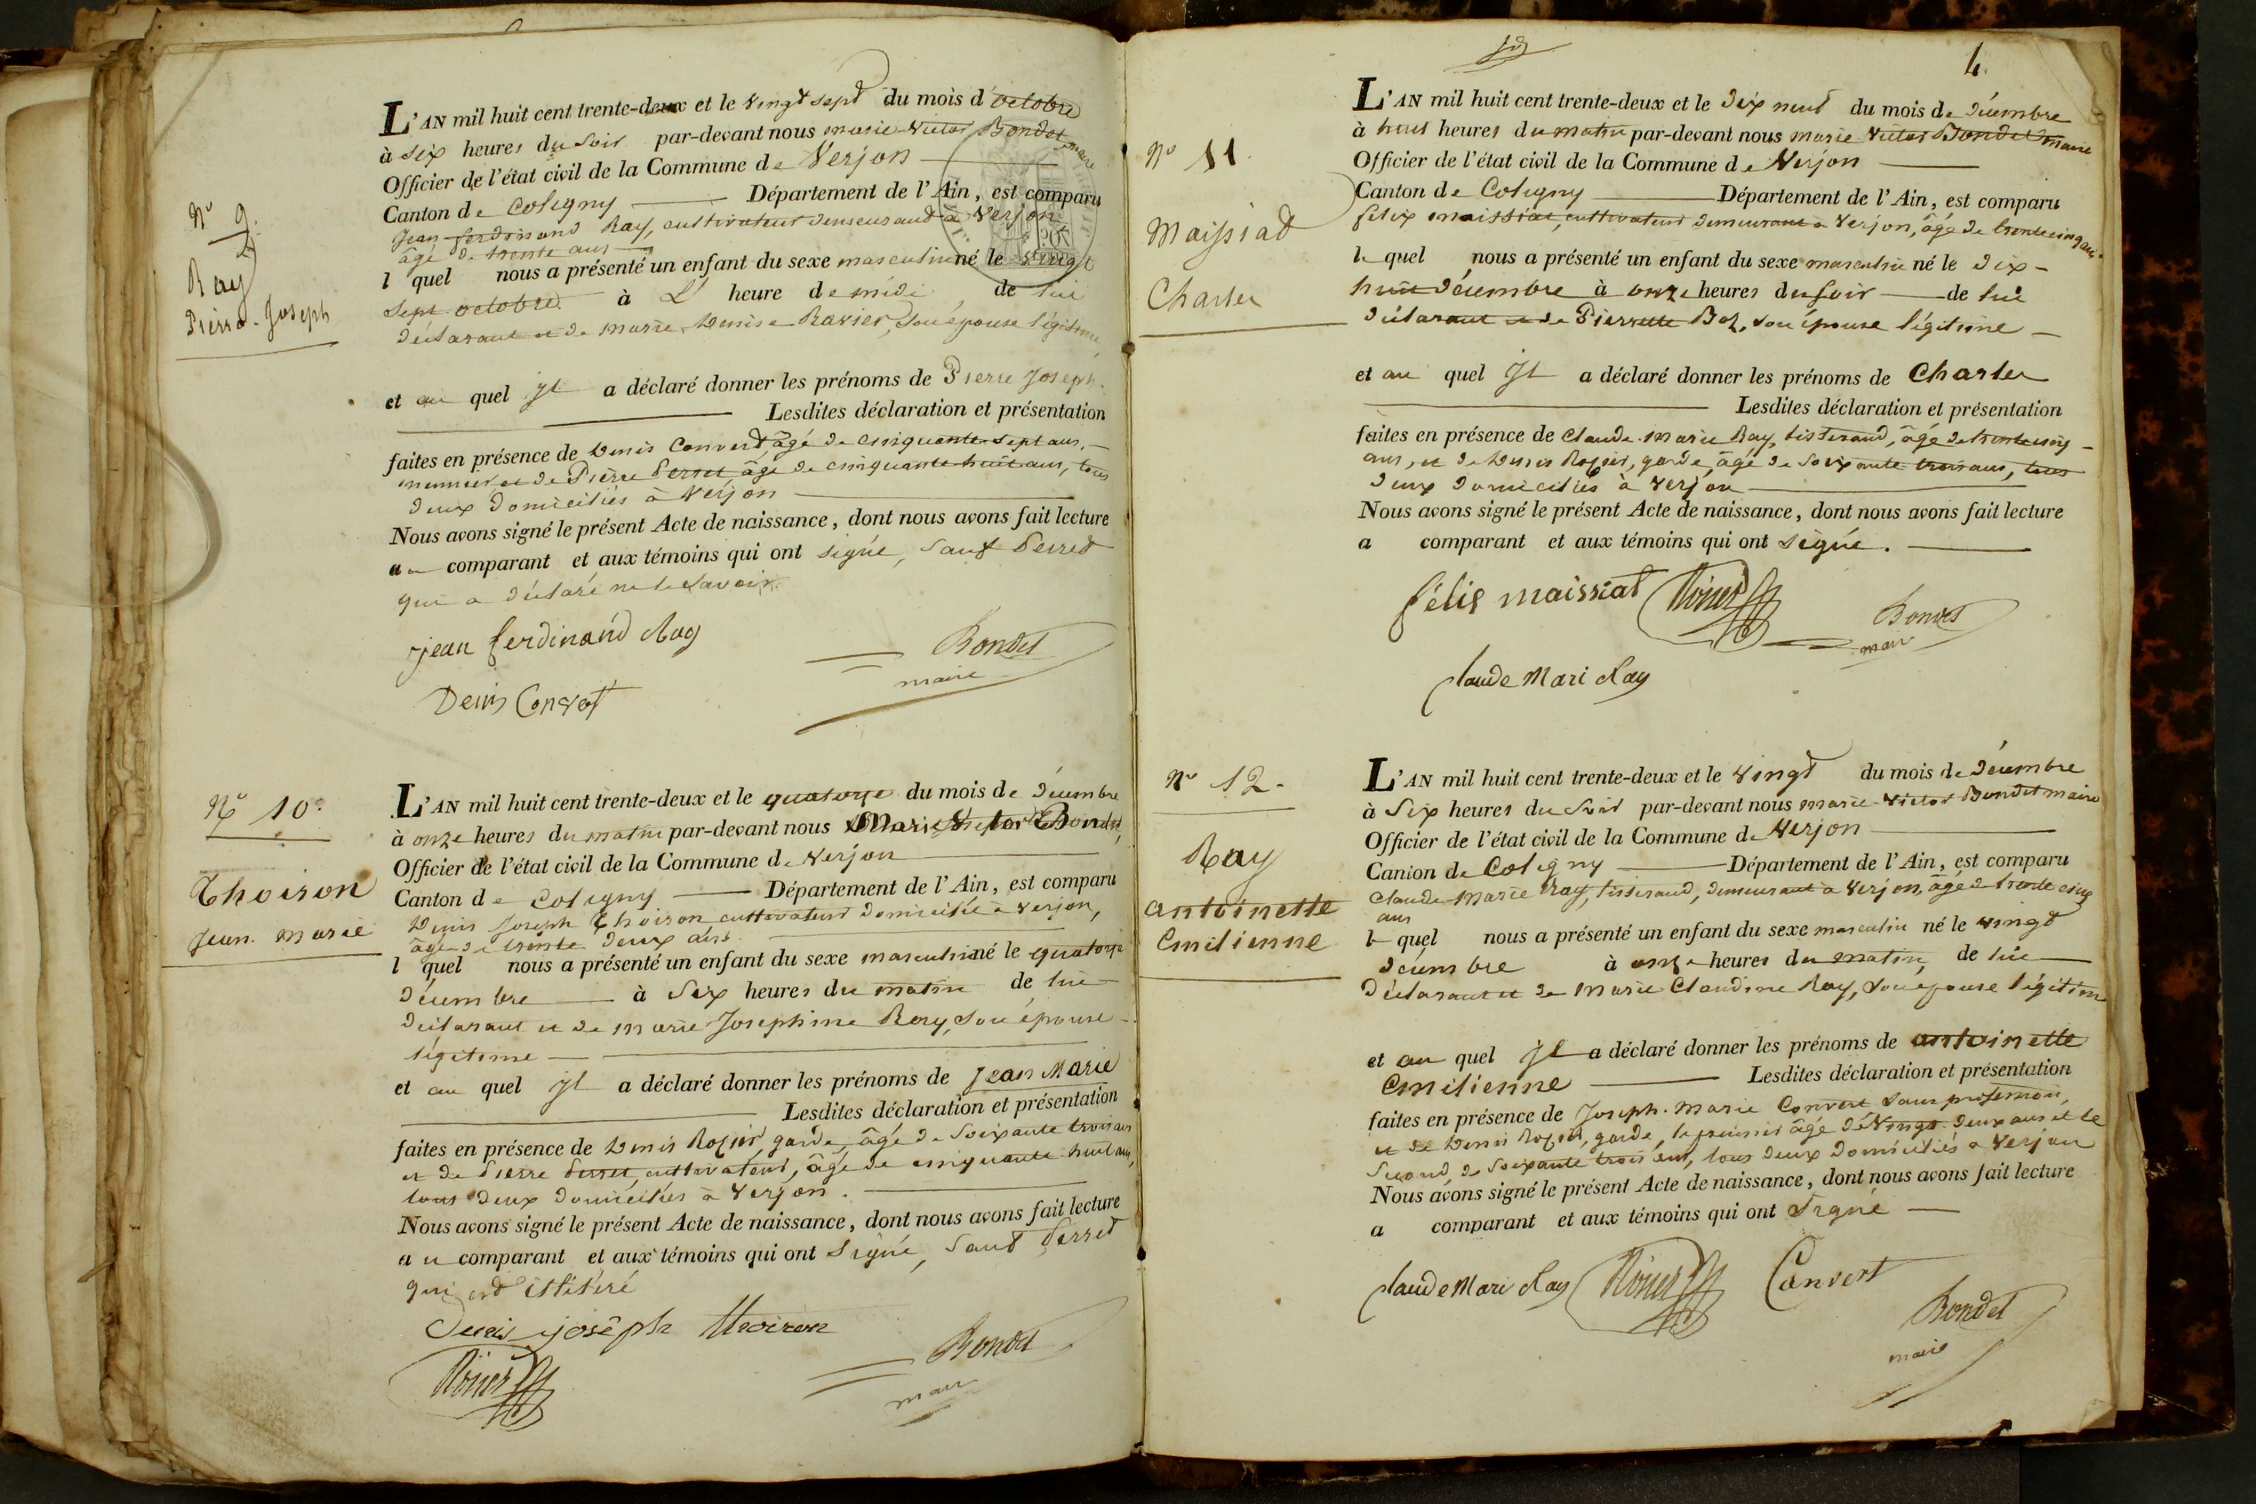 N° 9.
Ray
Pierre-Joseph
L'AN mil huit cent trente-deux et le vingt sept du mois d'octobre
à six heures du soir par-devant nous marie-victor Bondet, maire
Officier de l'état civil de la Commune de Verjon
Canton de Coligny Département de l'Ain, est comparu
Jean ferdinand Ray, cultivateur demeurant à Verjon
âgé de trente ans
l quel nous a présenté un enfant du sexe masculin né le vingt
sept octobre à L' heure de midi, de lui
déclarant et de marie Denise Ravier, son épouse légitime,
et au quel il a déclaré donner les prénoms de Pierre Joseph.
Lesdites déclaration et présentation
faites en présence de Denis Convert, âgé de cinquante-sept ans,
et de Pierre Perret, âgé de cinquante-huit ans, tous
deux domiciliés à Verjon
Nous avons signé le présent Acte de naissance, dont nous avons fait lecture
au comparant et aux témoins qui ont signé, sauf Perret
qui a déclaré ne le savoir.
jean ferdinand Ray
Bondet
maire
Denis Convert
N° 10.
Thoiron
Jean marie
L'AN mil huit cent trente-deux et le quatorze du mois de décembre
à onze heures du matin par-devant nous Marie Victor Bondet,
Officier de l'état civil de la Commune de Verjon
Canton de Coligny Département de l'Ain, est comparu
Denis Joseph Thoiron cultivateur domicilié à Verjon,
âgé de trente deux ans.
l quel nous a présenté un enfant du sexe masculin né le quatorze
décembre à six heures du matin de lui
déclarant et de marie Josephine Rey, son épouse
légitime
et au quel il a déclaré donner les prénoms de Jean Marie
Lesdites déclaration et présentation
faites en présence de Denis Rozier, garde, âgé de soixante trois ans
et de Pierre Perret, cultivateur, âgé de cinquante huit ans,
tous deux domiciliés à Verjon.
Nous avons signé le présent Acte de naissance, dont nous avons fait lecture
au comparant et aux témoins qui ont signé, sauf Perret
qui est illitéré
Denis joseph thoiron
Bondet
maire
4.
N° 11.
Maissiat
Charles
L'AN mil huit cent trente-deux et le dix neuf du mois de décembre
à huit heures du matin par-devant nous marie victor Bondet maire
Officier de l'état civil de la Commune de Verjon
Canton de Coligny Département de l'Ain, est comparu
félix maissiat, cultivateur demeurant à Verjon, âgé de trente cinq ans.
le quel nous a présenté un enfant du sexe masculin né le dix-
huit décembre à onze heures du soir de lui
déclarant et de Pierrette Boz, son épouse légitime
et au quel il a déclaré donner les prénoms de Charles
Lesdites déclaration et présentation
faites en présence de Claude-Marie Ray, tisserand, âgé de trente cinq
ans, et de Denis Rozier, garde, âgé de soixante trois ans, tous
deux domiciliés à Verjon
Nous avons signé le présent Acte de naissance, dont nous avons fait lecture
a comparant et aux témoins qui ont signé.
félix maissiat
Bondet
maire
Claude Mari Ray
N° 12.
Ray
antoinette
Emilienne
L'AN mil huit cent trente-deux et le vingt du mois de décembre
à six heures du soir par-devant nous marie-victor Bondet maire
Officier de l'état civil de la Commune de Verjon
Canton de Coligny Département de l'Ain, est comparu
Claude-Marie Ray, tisserand, demeurant à Verjon, âgé de trente cinq
ans
le quel nous a présenté un enfant du sexe masculin né le vingt
décembre à onze heures du matin, de lui
déclarant et de Marie Claudine Ray, son épouse légitime
et au quel il a déclaré donner les prénoms de antoinette
Emilienne Lesdites déclaration et présentation
faites en présence de Joseph-Marie Convert sans profession,
et de Denis Rozier, garde, le premier âgé de vingt-deux ans et le
second, de soixante trois ans, tous deux domiciliés à Verjon
Nous avons signé le présent Acte de naissance, dont nous avons fait lecture
a comparant et aux témoins qui ont signé
Claude Mari Ray
Convert
Bondet
maire